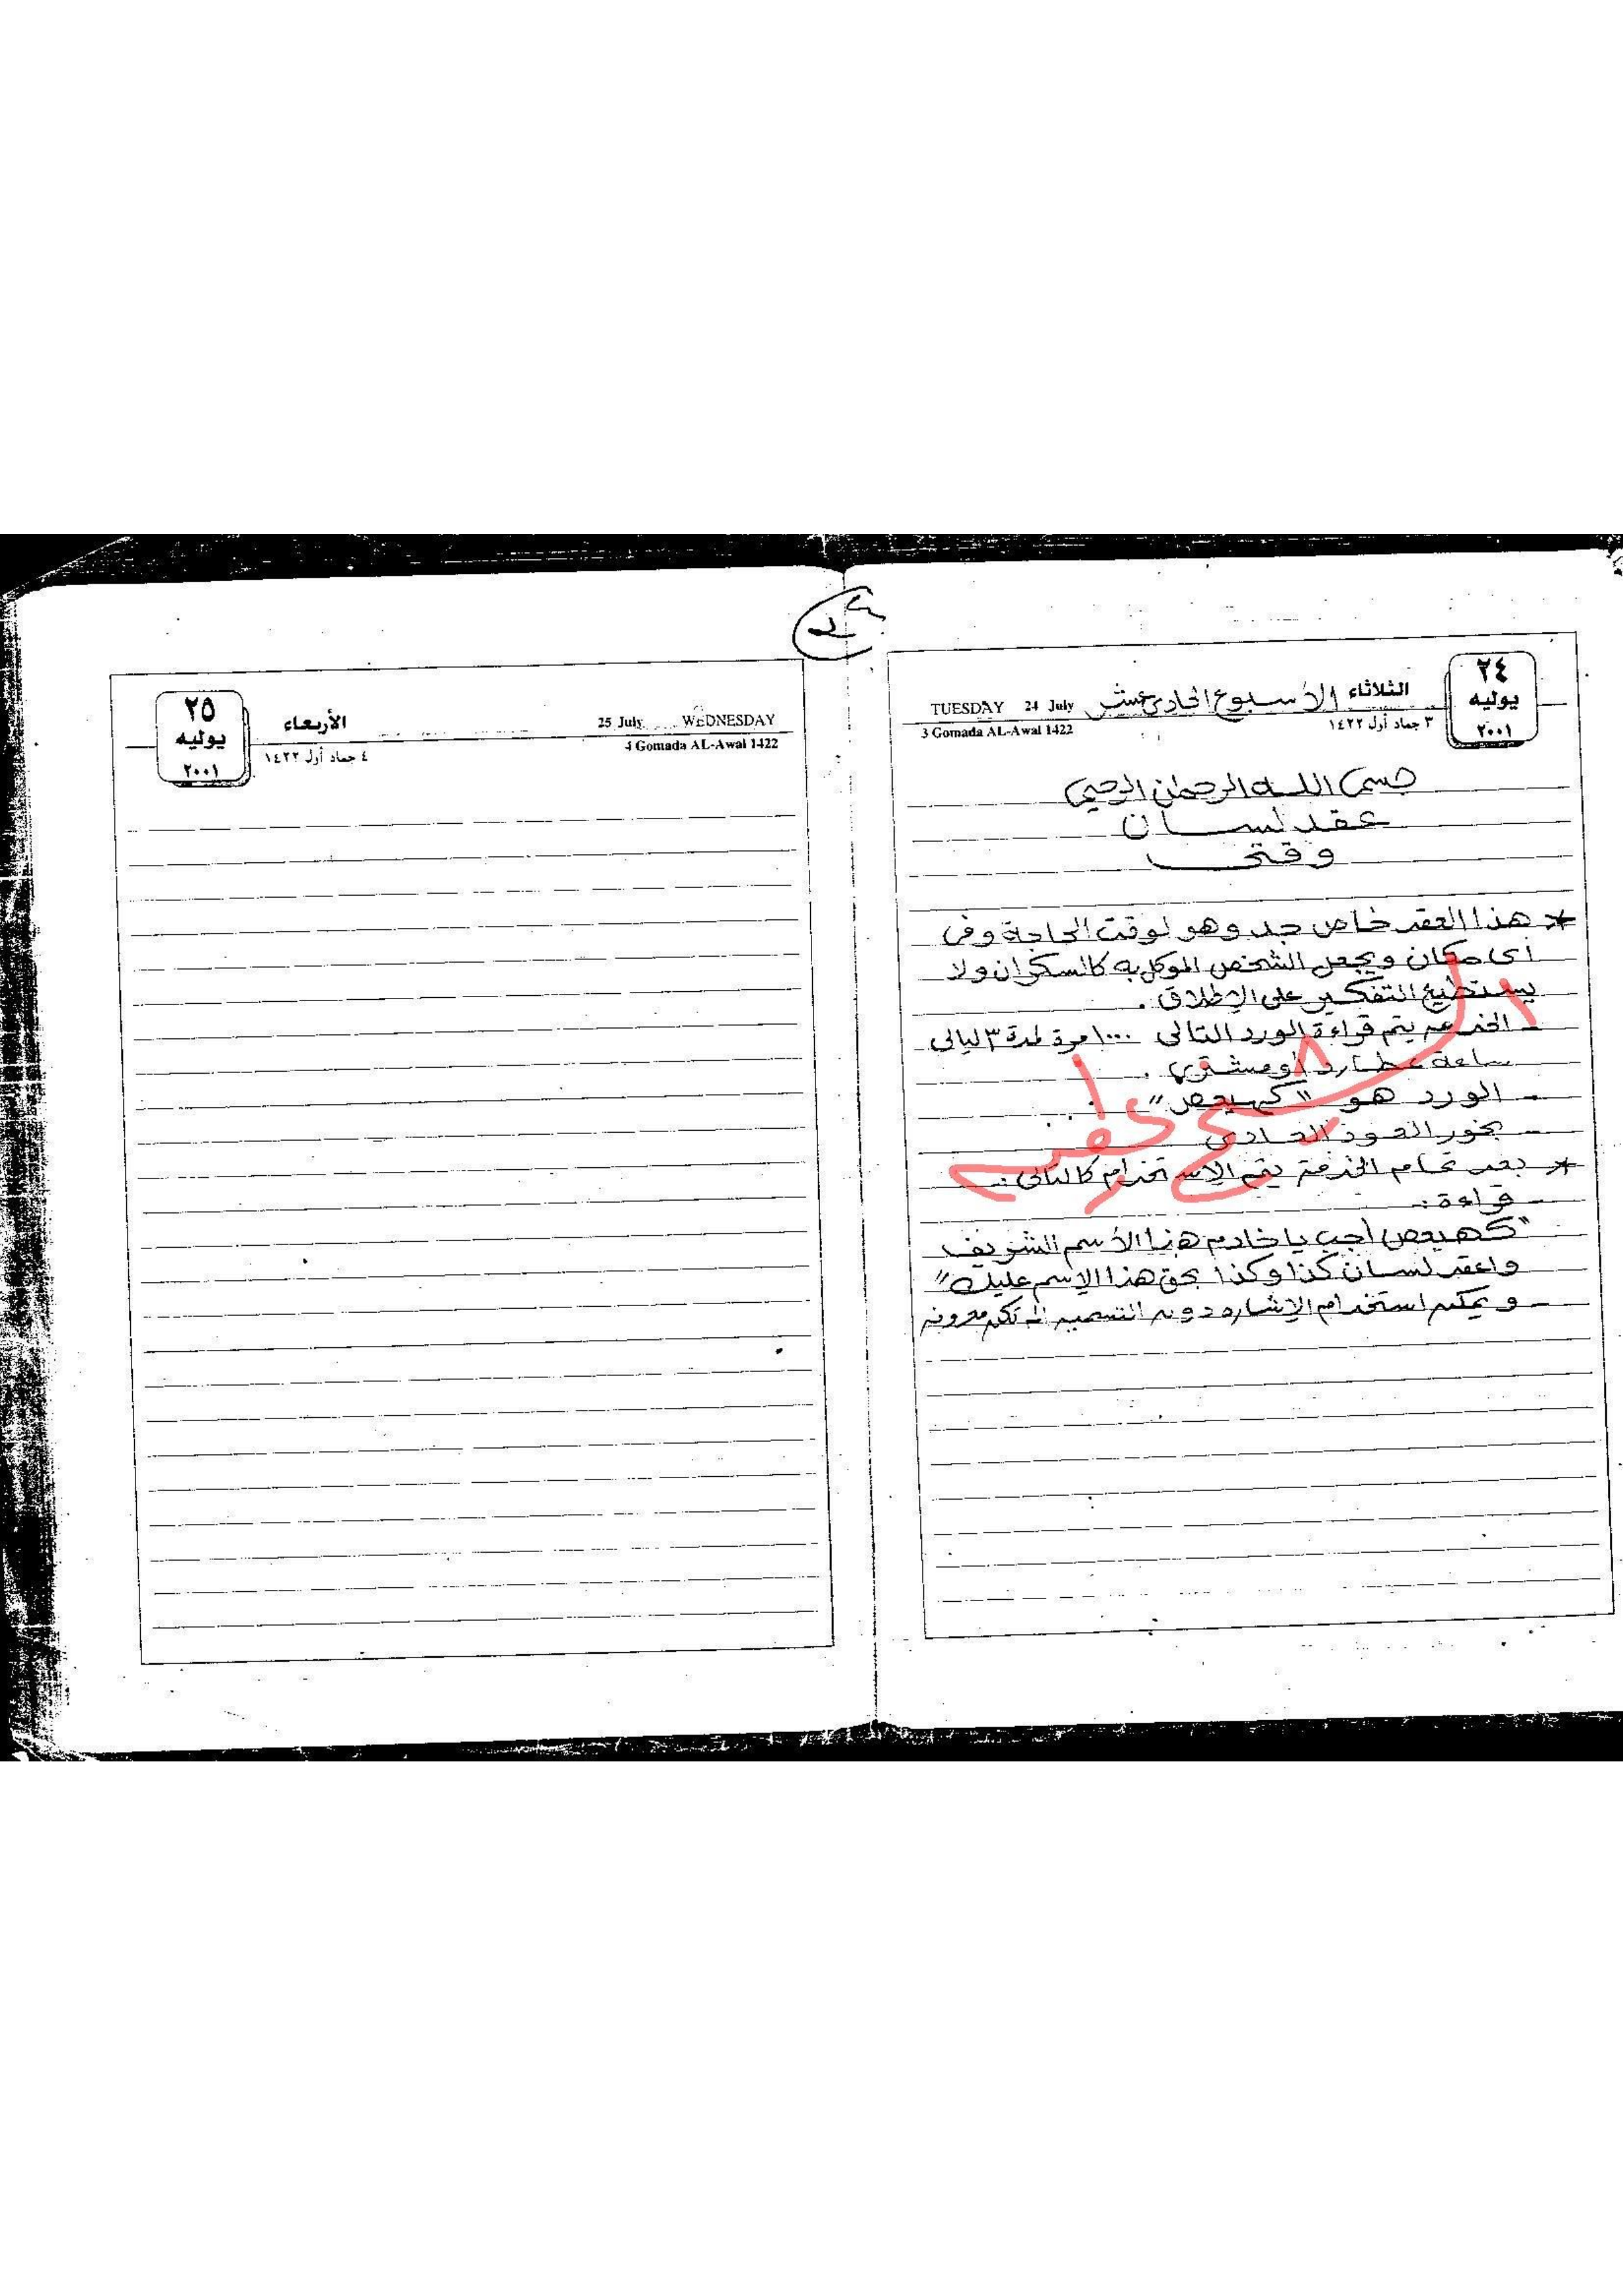 ٢٤
يوليه
٢٠٠١
الثلاثاء
الأسبوع الحادى عشر
TUESDAY 24 July
٣ جماد أول ١٤٢٢
3 Gomada AL-Awal 1422
بسم الله الرحمان الرحيم
عقد لسان
وقتى
* هذا العقد خاص جد وهو لوقت الحاجة وفى
أى مكان ويجعل الشخص الموكل به كالسكران ولا
يستطيع التفكير على الإطلاق .
- يتم قراءة الورد التالى ١٠٠٠ مرة لمدة ٣ ليالى
ساعة عطارد أو مشترى .
- الورد هو "كهيعص" .
- بخور العود الجاوى
* بعد تمام الخدمة يتم الإستخدام كالتالى :-
- قراءة :-
"كهيعص أجب يا خادم هذا الأسم الشريف
واعقد لسان كذا وكذا بحق هذا الإسم عليك"
- ويمكنه استخدام الإشاره دونه التسميه
الشيخ
٢٥
يوليه
٢٠٠١
الأربعاء
25 July WEDNESDAY
٤ جماد أول ١٤٢٢
4 Gomada AL-Awal 1422